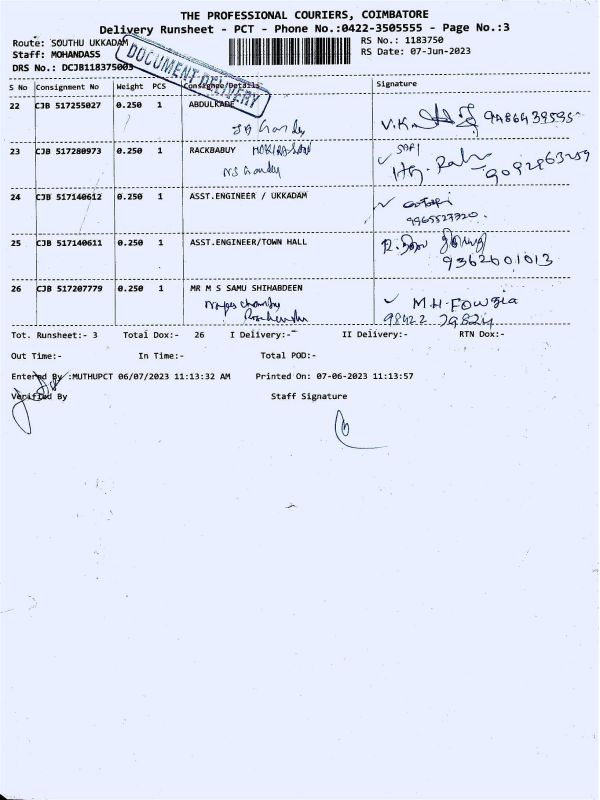 THE PROFESSIONAL COURIERS, COIMBATORE
Delivery Runsheet - PCT - Phone No.:0422-3505555 - Page No.:3
Route: SOUTHU UKKADAM RS No.: 1183750
Staff: MOHANDASS RS Date: 07-Jun-2023
DRS No.: DCJB118375003
DOCUMENT DELIVERY
S No Consignment No Weight PCS Consignee Details Signature
22 CJB 517255027 0.250 1 ABDULKADE 9486439595
23 CJB 517280973 0.250 1 RACKBABUY
9092863259
24 CJB 517140612 0.250 1 ASST.ENGINEER / UKKADAM
9965527320.
25 CJB 517140611 0.250 1 ASST.ENGINEER/TOWN HALL
9362601013
26 CJB 517207779 0.250 1 MR M S SAMU SHIHABDEEN M.H.FOWZIA
98422
Tot. Runsheet:- 3 Total Dox:- 26 I Delivery:- II Delivery:- RTN Dox:-
Out Time:- In Time:- Total POD:-
Entered By :MUTHUPCT 06/07/2023 11:13:32 AM Printed On: 07-06-2023 11:13:57
Verified By Staff Signature